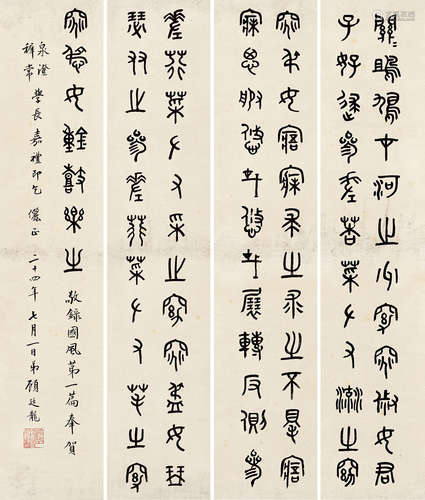 關〻鴡鳩在河之州窈窕淑女君
子好逑參差荇菜左右流之窈
窕淑女寤寐求之求之不得寤
寐思服悠哉悠哉展轉反側參
差荇菜左右采之窈窕淑女琴
瑟友之參差荇菜左右芼之窈
窕淑女鐘鼓樂之 敬錄國風第一篇奉賀
泉澄
稺常 學長嘉禮即乞 儷正 二十四年七月一日弟顧廷龍